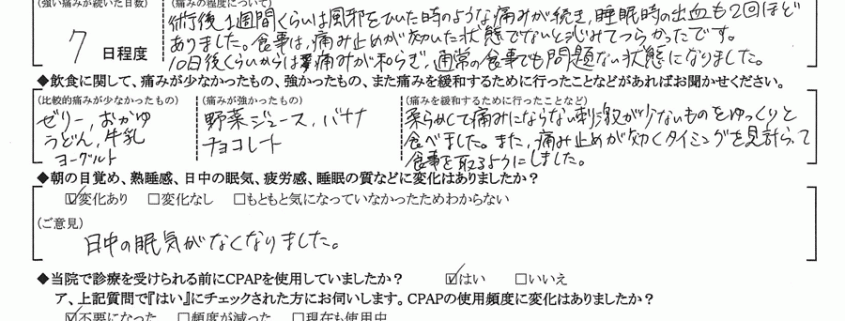 (強い痛みが続いた日数)
(痛みの程度について)
7 日程度
術後1週間くらいは風邪をひいた時のような痛みが続き、睡眠時の出血も2回ほど
ありました。食事は、痛み止めが効いた状態でないと沁みてつらかったです。
10日後くらいからは痛みが和らぎ、通常の食事でも問題ない状態になりました。
◆飲食に関して、痛みが少なかったもの、強かったもの、また痛みを緩和するために行ったことなどがあればお聞かせください。
(比較的痛みが少なかったもの)
ゼリー、おかゆ
うどん、牛乳
ヨーグルト
(痛みが強かったもの)
野菜ジュース、バナナ
チョコレート
(痛みを緩和するために行ったことなど)
柔らかくて痛みにならない刺激が少ないものをゆっくりと
食べました。また、痛み止めが効くタイミングを見計らって
食事を取るようにしました。
◆朝の目覚め、熟睡感、日中の眠気、疲労感、睡眠の質などに変化はありましたか?
☑変化あり □変化なし □もともと気になっていなかったためわからない
(ご意見)
日中の眠気がなくなりました。
◆当院で診療を受けられる前にCPAPを使用していましたか? ☑はい □いいえ
ア、上記質問で『はい』にチェックされた方にお伺いします。CPAPの使用頻度に変化はありましたか?
☑不要になった □頻度が減った □現在も使用中